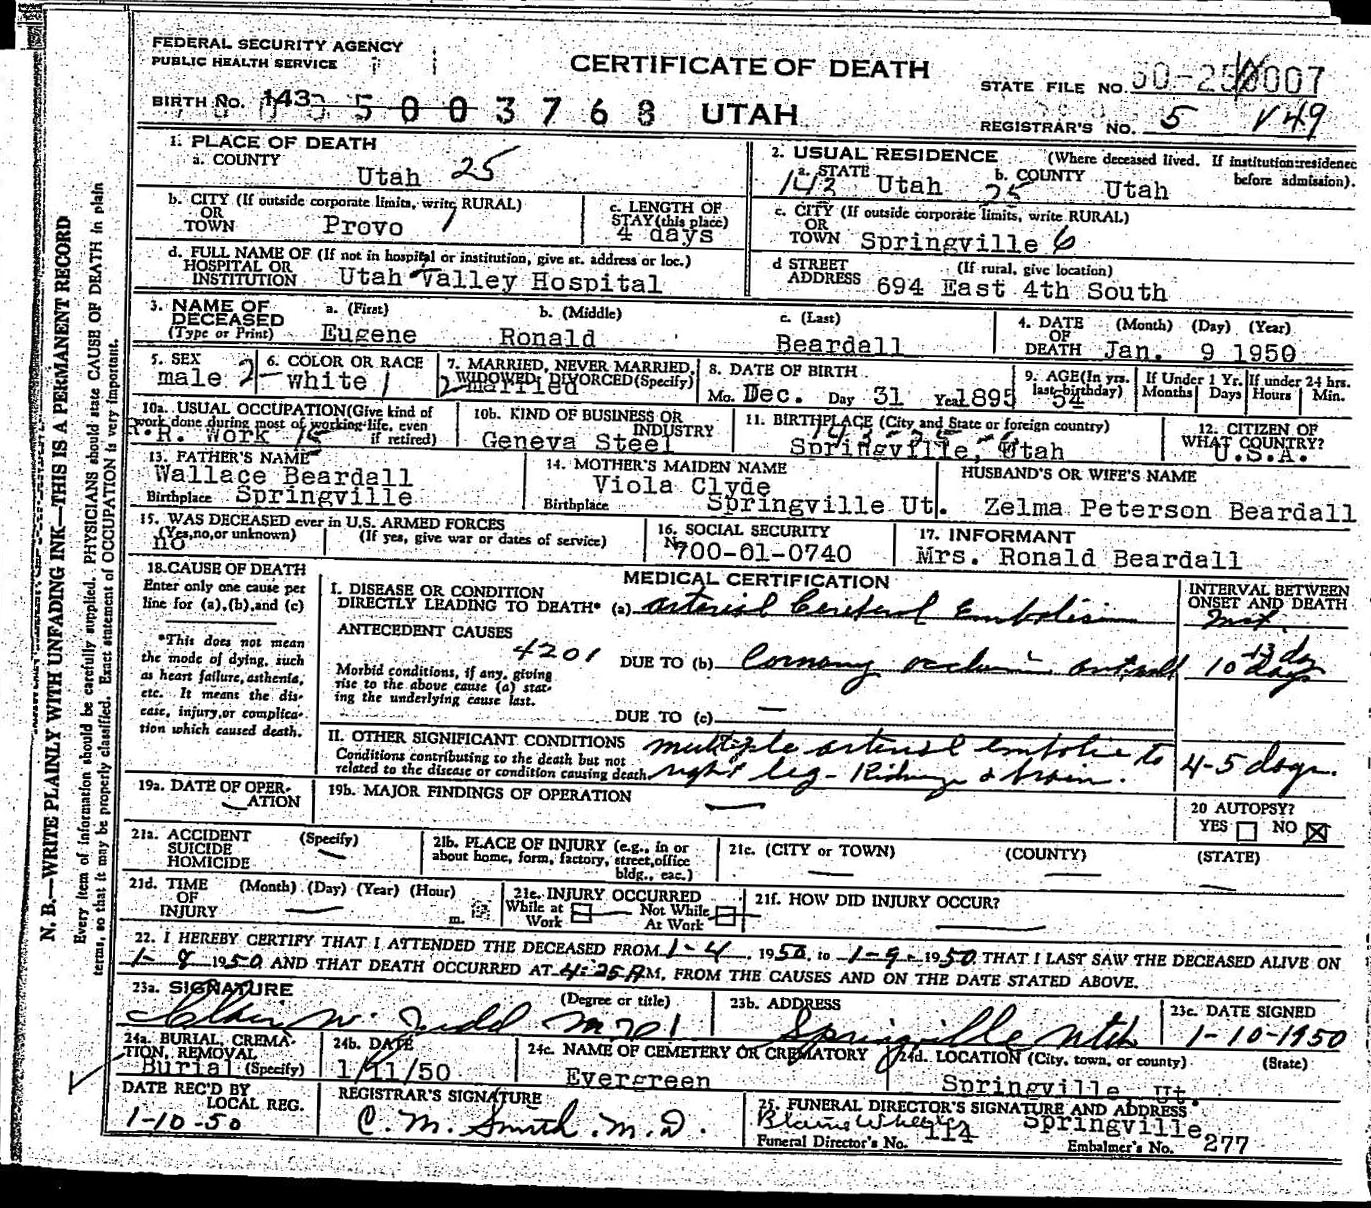 FEDERAL SECURITY AGENCY
PUBLIC HEALTH SERVICE
CERTIFICATE OF DEATH
STATE FILE NO.
BIRTH No. 143 5003768 UTAH
REGISTRAR'S NO. 5 V49
1. PLACE OF DEATH
a. COUNTY
Utah 25
2. USUAL RESIDENCE (Where deceased lived. If institution: residence before admission).
a. STATE 143 Utah
b. COUNTY 25 Utah
b. CITY (If outside corporate limits, write RURAL)
OR TOWN Provo 1
c. LENGTH OF STAY (this place)
4 days
c. CITY (If outside corporate limits, write RURAL)
OR TOWN Springville 6
d. FULL NAME OF (If not in hospital or institution, give st. address or loc.)
HOSPITAL OR INSTITUTION Utah Valley Hospital
d STREET ADDRESS (If rural, give location)
694 East 4th South
3. NAME OF DECEASED (Type or Print)
a. (First) b. (Middle) c. (Last)
Eugene Ronald Beardall
4. DATE OF DEATH (Month) (Day) (Year)
Jan. 9 1950
5. SEX
male 2
6. COLOR OR RACE
white 1
7. MARRIED, NEVER MARRIED, WIDOWED, DIVORCED (Specify)
2 married
8. DATE OF BIRTH
Mo. Dec. Day 31 Year 1895
9. AGE (In yrs. last birthday)
54
If Under 1 Yr. Months Days
If under 24 hrs. Hours Min.
10a. USUAL OCCUPATION (Give kind of work done during most of working life, even if retired)
R.R. Work
10b. KIND OF BUSINESS OR INDUSTRY
Geneva Steel
11. BIRTHPLACE (City and State or foreign country)
Springville, Utah
12. CITIZEN OF WHAT COUNTRY?
U.S.A.
13. FATHER'S NAME
Wallace Beardall
Birthplace Springville
14. MOTHER'S MAIDEN NAME
Viola Clyde
Birthplace Springville Ut.
HUSBAND'S OR WIFE'S NAME
Zelma Peterson Beardall
15. WAS DECEASED ever in U.S. ARMED FORCES
(Yes, no, or unknown) (If yes, give war or dates of service)
no
16. SOCIAL SECURITY
No 700-01-0740
17. INFORMANT
Mrs. Ronald Beardall
18. CAUSE OF DEATH
Enter only one cause per line for (a), (b), and (c)
*This does not mean the mode of dying, such as heart failure, asthenia, etc. It means the disease, injury, or complication which caused death.
MEDICAL CERTIFICATION
I. DISEASE OR CONDITION
DIRECTLY LEADING TO DEATH* (a) arterial Cerebral Embolism
ANTECEDENT CAUSES
4201
DUE TO (b) Coronary occlusion
Morbid conditions, if any, giving rise to the above cause (a) stating the underlying cause last.
DUE TO (c) —
INTERVAL BETWEEN ONSET AND DEATH
10 days
II. OTHER SIGNIFICANT CONDITIONS
Conditions contributing to the death but not related to the disease or condition causing death
multiple arterial embolie to
right leg - Kidneys & brain.
4-5 days.
19a. DATE OF OPERATION
—
19b. MAJOR FINDINGS OF OPERATION
—
20 AUTOPSY?
YES ☐ NO ☒
21a. ACCIDENT SUICIDE HOMICIDE (Specify)
—
21b. PLACE OF INJURY (e.g., in or about home, form, factory, street, office bldg., eac.)
21c. (CITY or TOWN) (COUNTY) (STATE)
— — —
21d. TIME OF INJURY (Month) (Day) (Year) (Hour) m.
—
21e. INJURY OCCURRED
While at Work Not While At Work
21f. HOW DID INJURY OCCUR?
—
22. I HEREBY CERTIFY THAT I ATTENDED THE DECEASED FROM 1-4, 1950, to 1-9, 1950 THAT I LAST SAW THE DECEASED ALIVE ON
1-8 1950 AND THAT DEATH OCCURRED AT 4:25 A M, FROM THE CAUSES AND ON THE DATE STATED ABOVE.
23a. SIGNATURE (Degree or title)
W. Judd M D
23b. ADDRESS
Springville Utah
23c. DATE SIGNED
1-10-1950
24a. BURIAL, CREMATION, REMOVAL (Specify)
Burial
24b. DATE
1/11/50
24c. NAME OF CEMETERY OR CREMATORY
Evergreen
24d. LOCATION (City, town, or county) (State)
Springville, Ut
DATE REC'D BY LOCAL REG.
1-10-50
REGISTRAR'S SIGNATURE
C. M. Smith. M.D.
25. FUNERAL DIRECTOR'S SIGNATURE AND ADDRESS
Springville
Funeral Director's No. 114
Embalmer's No. 277
N. B.—WRITE PLAINLY WITH UNFADING INK—THIS IS A PERMANENT RECORD
Every item of information should be carefully supplied. PHYSICIANS should state CAUSE OF DEATH in plain
terms, so that it may be properly classified. Exact statement of OCCUPATION is very important.